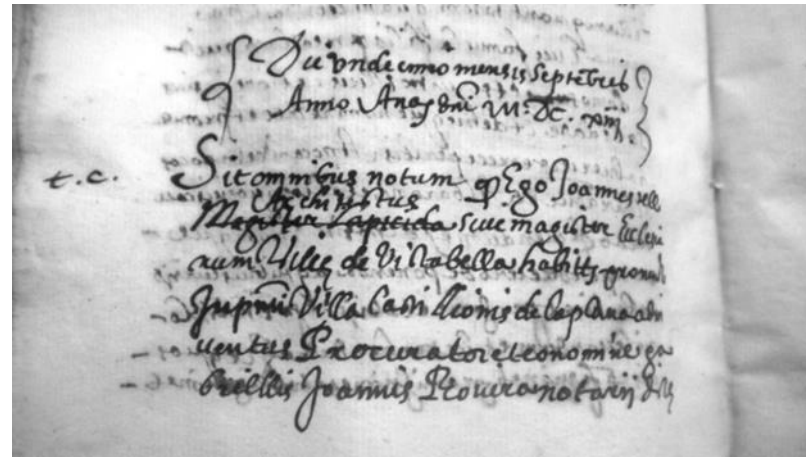 Die undecimo mensis Septebris
Anno Anat dni M. DC. xiiij
t. c.
Sit omnibus notum q Ego Joannes
Architectus
Magister Lapicida sive magister Eclesia
rum Ville de Vistabella habitts pro nunc
In pnti Villa Castillionis de la plana ad in
ventus Procurator et eo nomine ga
briellis Joannis Rovira notarij